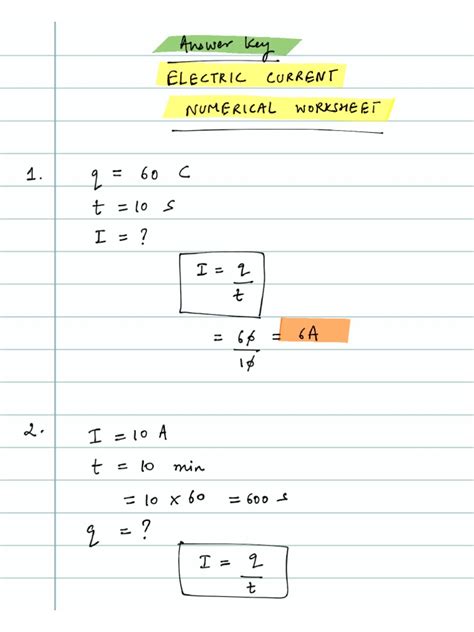 Answer Key
ELECTRIC CURRENT
NUMERICAL WORKSHEET
1. q = 60 C
t = 10 s
I = ?
I = q/t
= 60/10 = 6A
2. I = 10 A
t = 10 min
= 10 × 60 = 600 s
q = ?
I = q/t